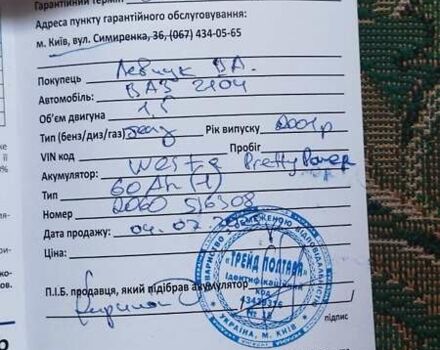 Гарантійний термін
Адреса пункту гарантійного обслуговування:
м. Київ, вул. Симиренка, 36, (067) 434-05-65
Покупець Левчук В.А.
Автомобіль: ВАЗ 2104
Об'єм двигуна 1,5
Тип (бенз/диз/газ) Рік випуску 2001р
VIN код Пробіг
Акумулятор: Westa Pretty Power
Тип 60Ah (1)
Номер 2060 516308
Дата продажу: 04.07.
Ціна:
П.І.Б. продавця, який підібрав акумулятор
підпис
ОБМЕЖЕНОЮ ВІДПОВІДАЛЬНІСТЮ
«ТРЕЙД ПОЛТАВА»
Ідентифікаційний
код
УКРАЇНА, М. КИЇВ